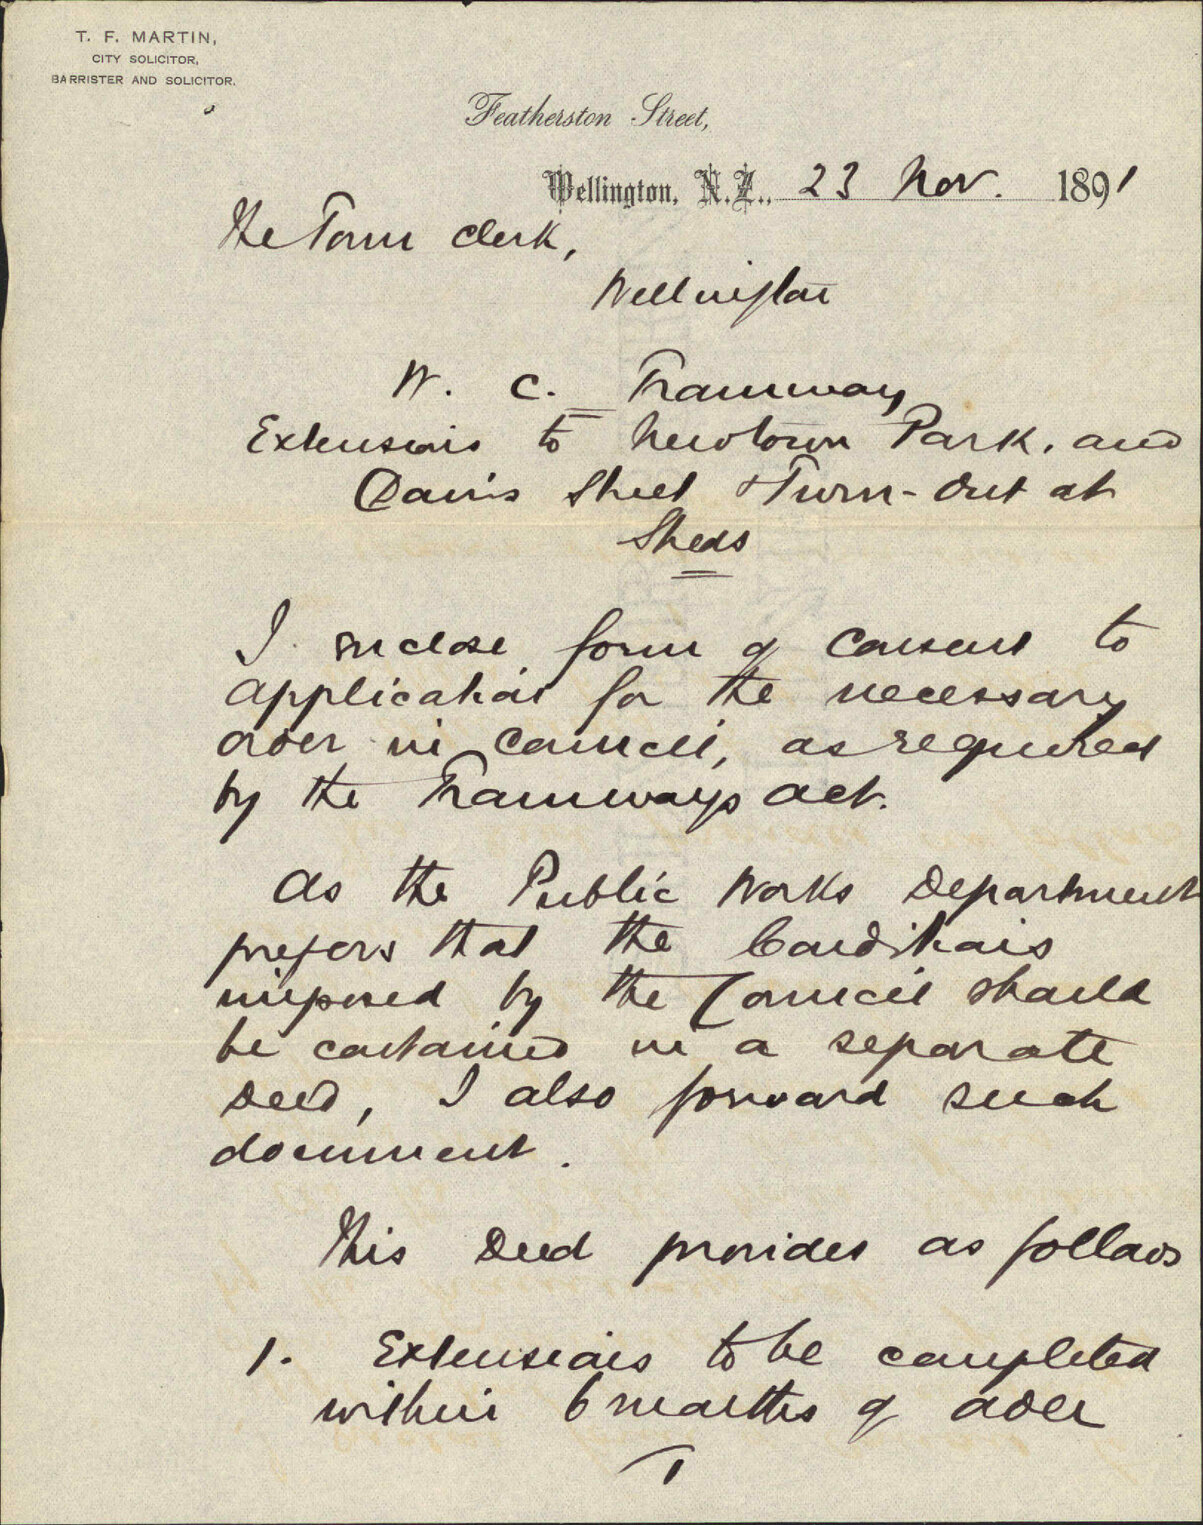 T. F. MARTIN,
CITY SOLICITOR,
BARRISTER AND SOLICITOR.
Featherston Street,
Wellington, N.Z., 23 Nov. 1891
The Town Clerk,
Wellington
W. C. Tramway
Extensions to Newtown Park, and
Davis Street & Turn-Out at
Sheds
I enclose form of Consent to
application for the necessary
order in Council, as required
by the Tramways Act.
As the Public Works Department
prefers that the Conditions
imposed by the Council should
be contained in a separate
Deed, I also forward such
document.
This Deed provides as follows
1. Extensions to be completed
within 6 months of order